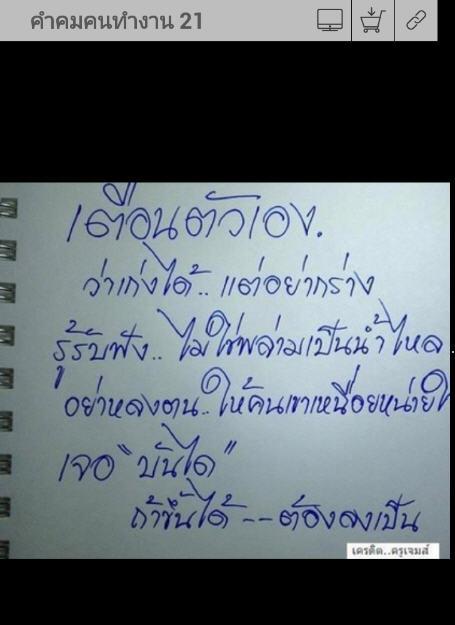 คำคมคนทำงาน 21
เตือนตัวเอง.
ว่าเก่งได้.. แต่อย่ากร่าง
รู้รับฟัง.. ไม่ใช่พล่ามเป็นน้ำไหล
อย่าหลงตน.. ให้คนเขาเหนื่อยหน่ายใ
เจอ "บันได"
ถ้าขึ้นได้ -- ต้องลงเป็น
เครดิต..ครูเจมส์